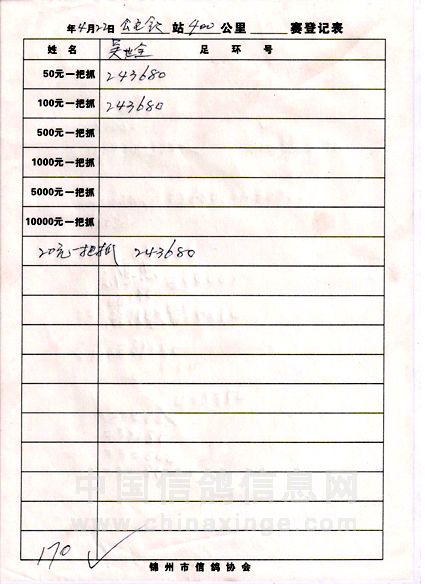 年4月22日 站400公里 赛登记表
姓 名 吴世全 足 环 号
50元一把抓 243680
100元一把抓 243680
500元一把抓
1000元一把抓
5000元一把抓
10000元一把抓
20元一把抓 243680
中国信鸽信息网
www.chinaxinge.com
170 ✓
锦州市信鸽协会